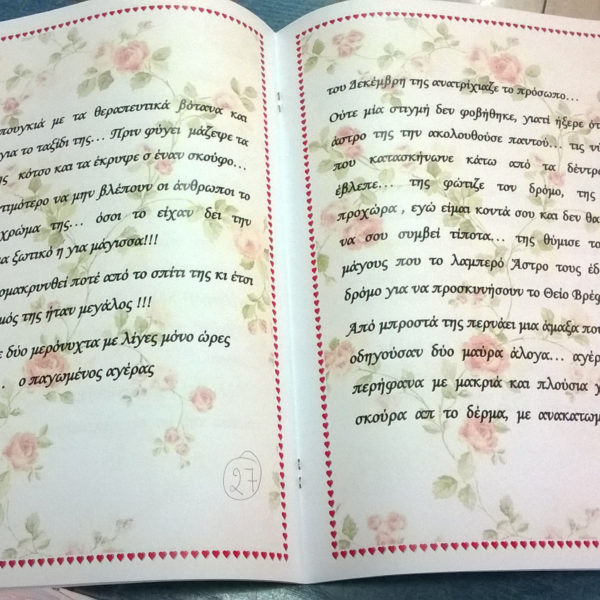 πουγκιά με τα θεραπευτικά βότανα και
για το ταξίδι της... Πριν φύγει μάζεψε τα
κότσο και τα έκρυψε σ έναν σκούφο...
τιμότερο να μην βλέπουν οι άνθρωποι το
χρώμα της... όσοι το είχαν δει την
ξωτικό η για μάγισσα!!!
ομακρυνθεί ποτέ από το σπίτι της κι έτσι
μός της ήταν μεγάλος !!!
ε δύο μερόνυχτα με λίγες μόνο ώρες
.. ο παγωμένος αγέρας
27
του Δεκέμβρη της ανατρίχιαζε το πρόσωπο...
Ούτε μία στιγμή δεν φοβήθηκε, γιατί ήξερε ότ
άστρο της την ακολουθούσε παντού... τις νύ
που κατασκήνωνε κάτω από τα δέντρ
έβλεπε... της φώτιζε τον δρόμο, της
προχώρα , εγώ είμαι κοντά σου και δεν θα
να σου συμβεί τίποτα... της θύμισε το
μάγους που το λαμπερό Άστρο τους έδ
δρόμο για να προσκυνήσουν το Θείο Βρέφ
Από μπροστά της περνάει μια άμαξα που
οδηγούσαν δύο μαύρα άλογα... αγέρ
περήφανα με μακριά και πλούσια χ
σκούρα απ το δέρμα, με ανακατωμ